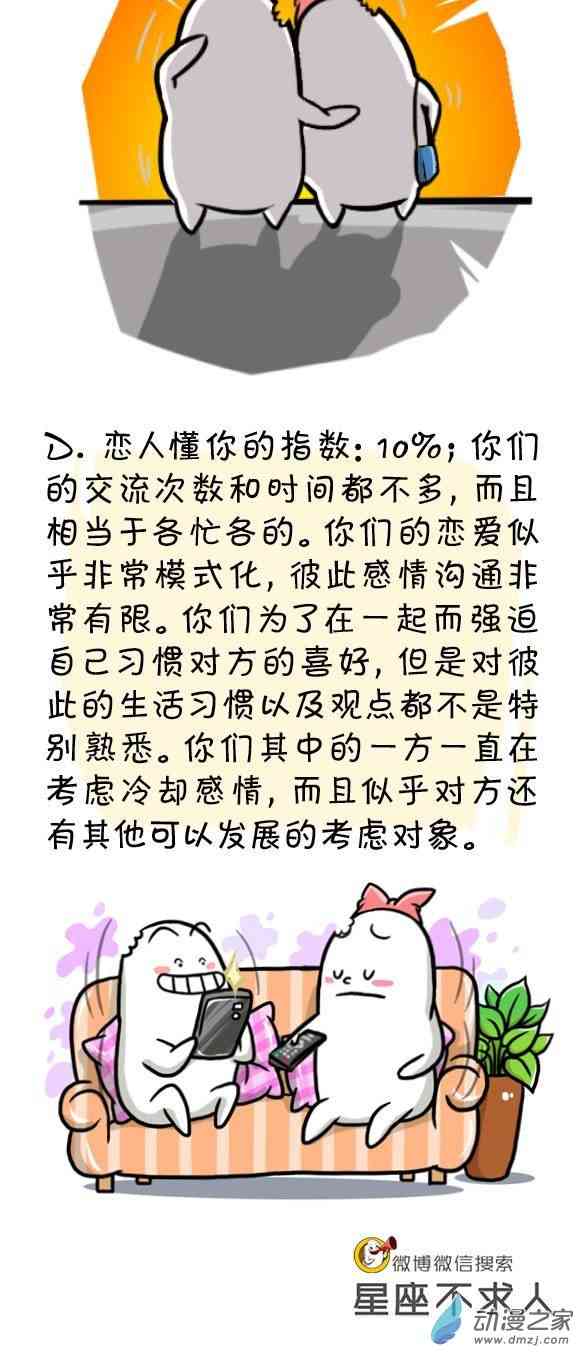 D. 恋人懂你的指数：10%；你们
的交流次数和时间都不多，而且
相当于各忙各的。你们的恋爱似
乎非常模式化，彼此感情沟通非
常有限。你们为了在一起而强迫
自己习惯对方的喜好，但是对彼
此的生活习惯以及观点都不是特
别熟悉。你们其中的一方一直在
考虑冷却感情，而且似乎对方还
有其他可以发展的考虑对象。
微博微信搜索
星座不求人
动漫之家
www.dmzj.com